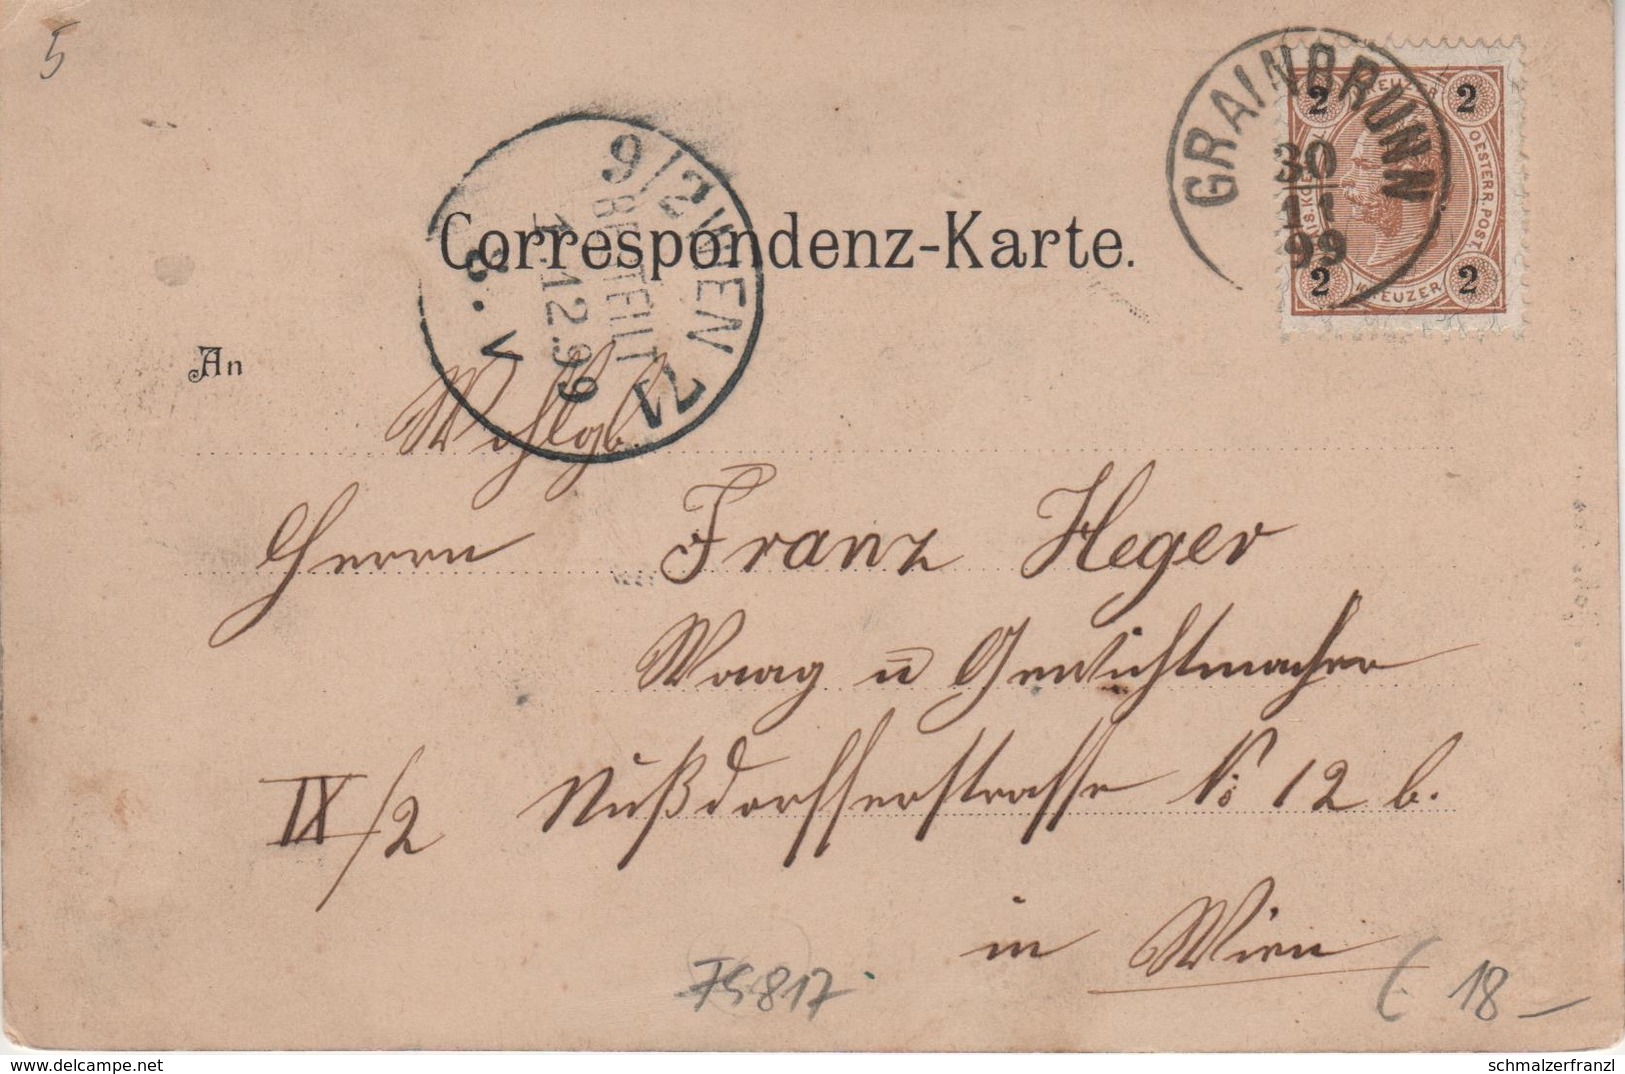 5
GRAINBRUNN
30
11
99
2 KREUZER 2
OESTERR. POST.
2 KREUZER 2
9/2 WIEN 71
BESTELLT
1.12.99
8.V
Correspondenz-Karte.
An
Wohlgb.
Herrn Franz Heger
Waag u Gewichtmacher
IX/2 Nußdorfferstrasse No 12 b.
in Wien
18 –
delcampe.net
schmalzerfranzl